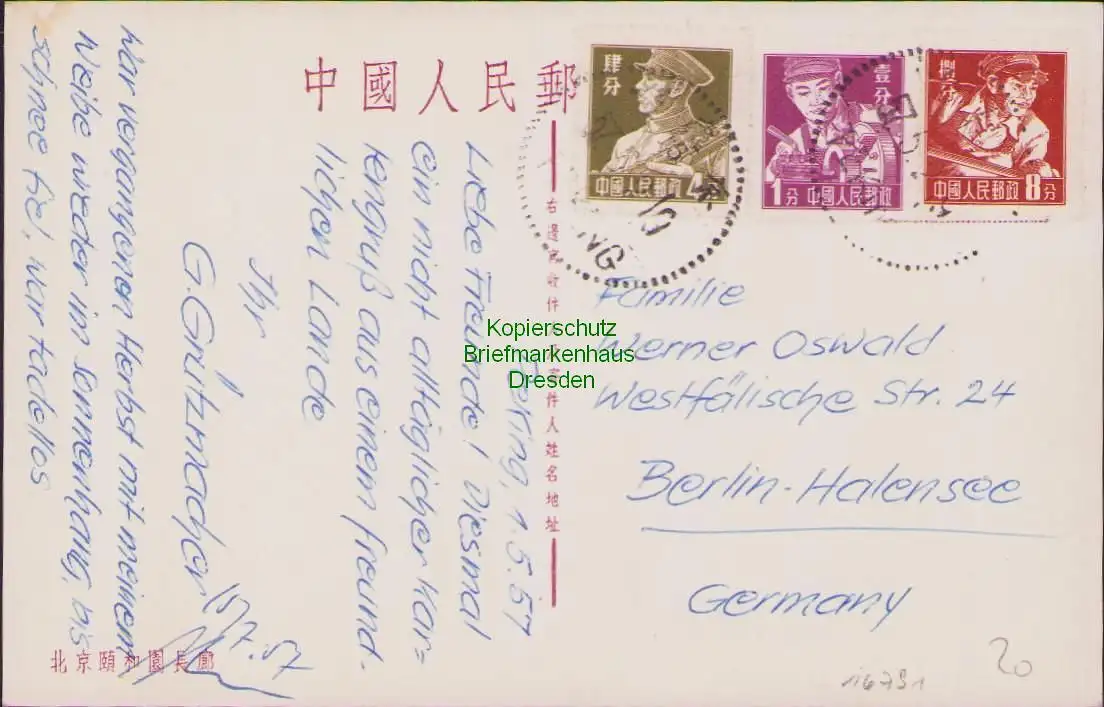 中國人民郵
肆分
中國人民郵政 4
壹分
1分 中國人民郵政
捌分
中國人民郵政 8分
Peking, 1.5.57
Liebe Freunde! Diesmal
ein nicht alltäglicher Kar=
tengruß aus einem freund-
lichen Lande
Ihr
G. Grützmacher
War vergangenen Herbst mit meinem
Weibe wieder im Sonnenhang, bis
Schnee fiel, war tadellos
北京頤和園長廊
Familie
Werner Oswald
Westfälische Str. 24
Berlin-Halensee
Germany
20
Kopierschutz
Briefmarkenhaus
Dresden